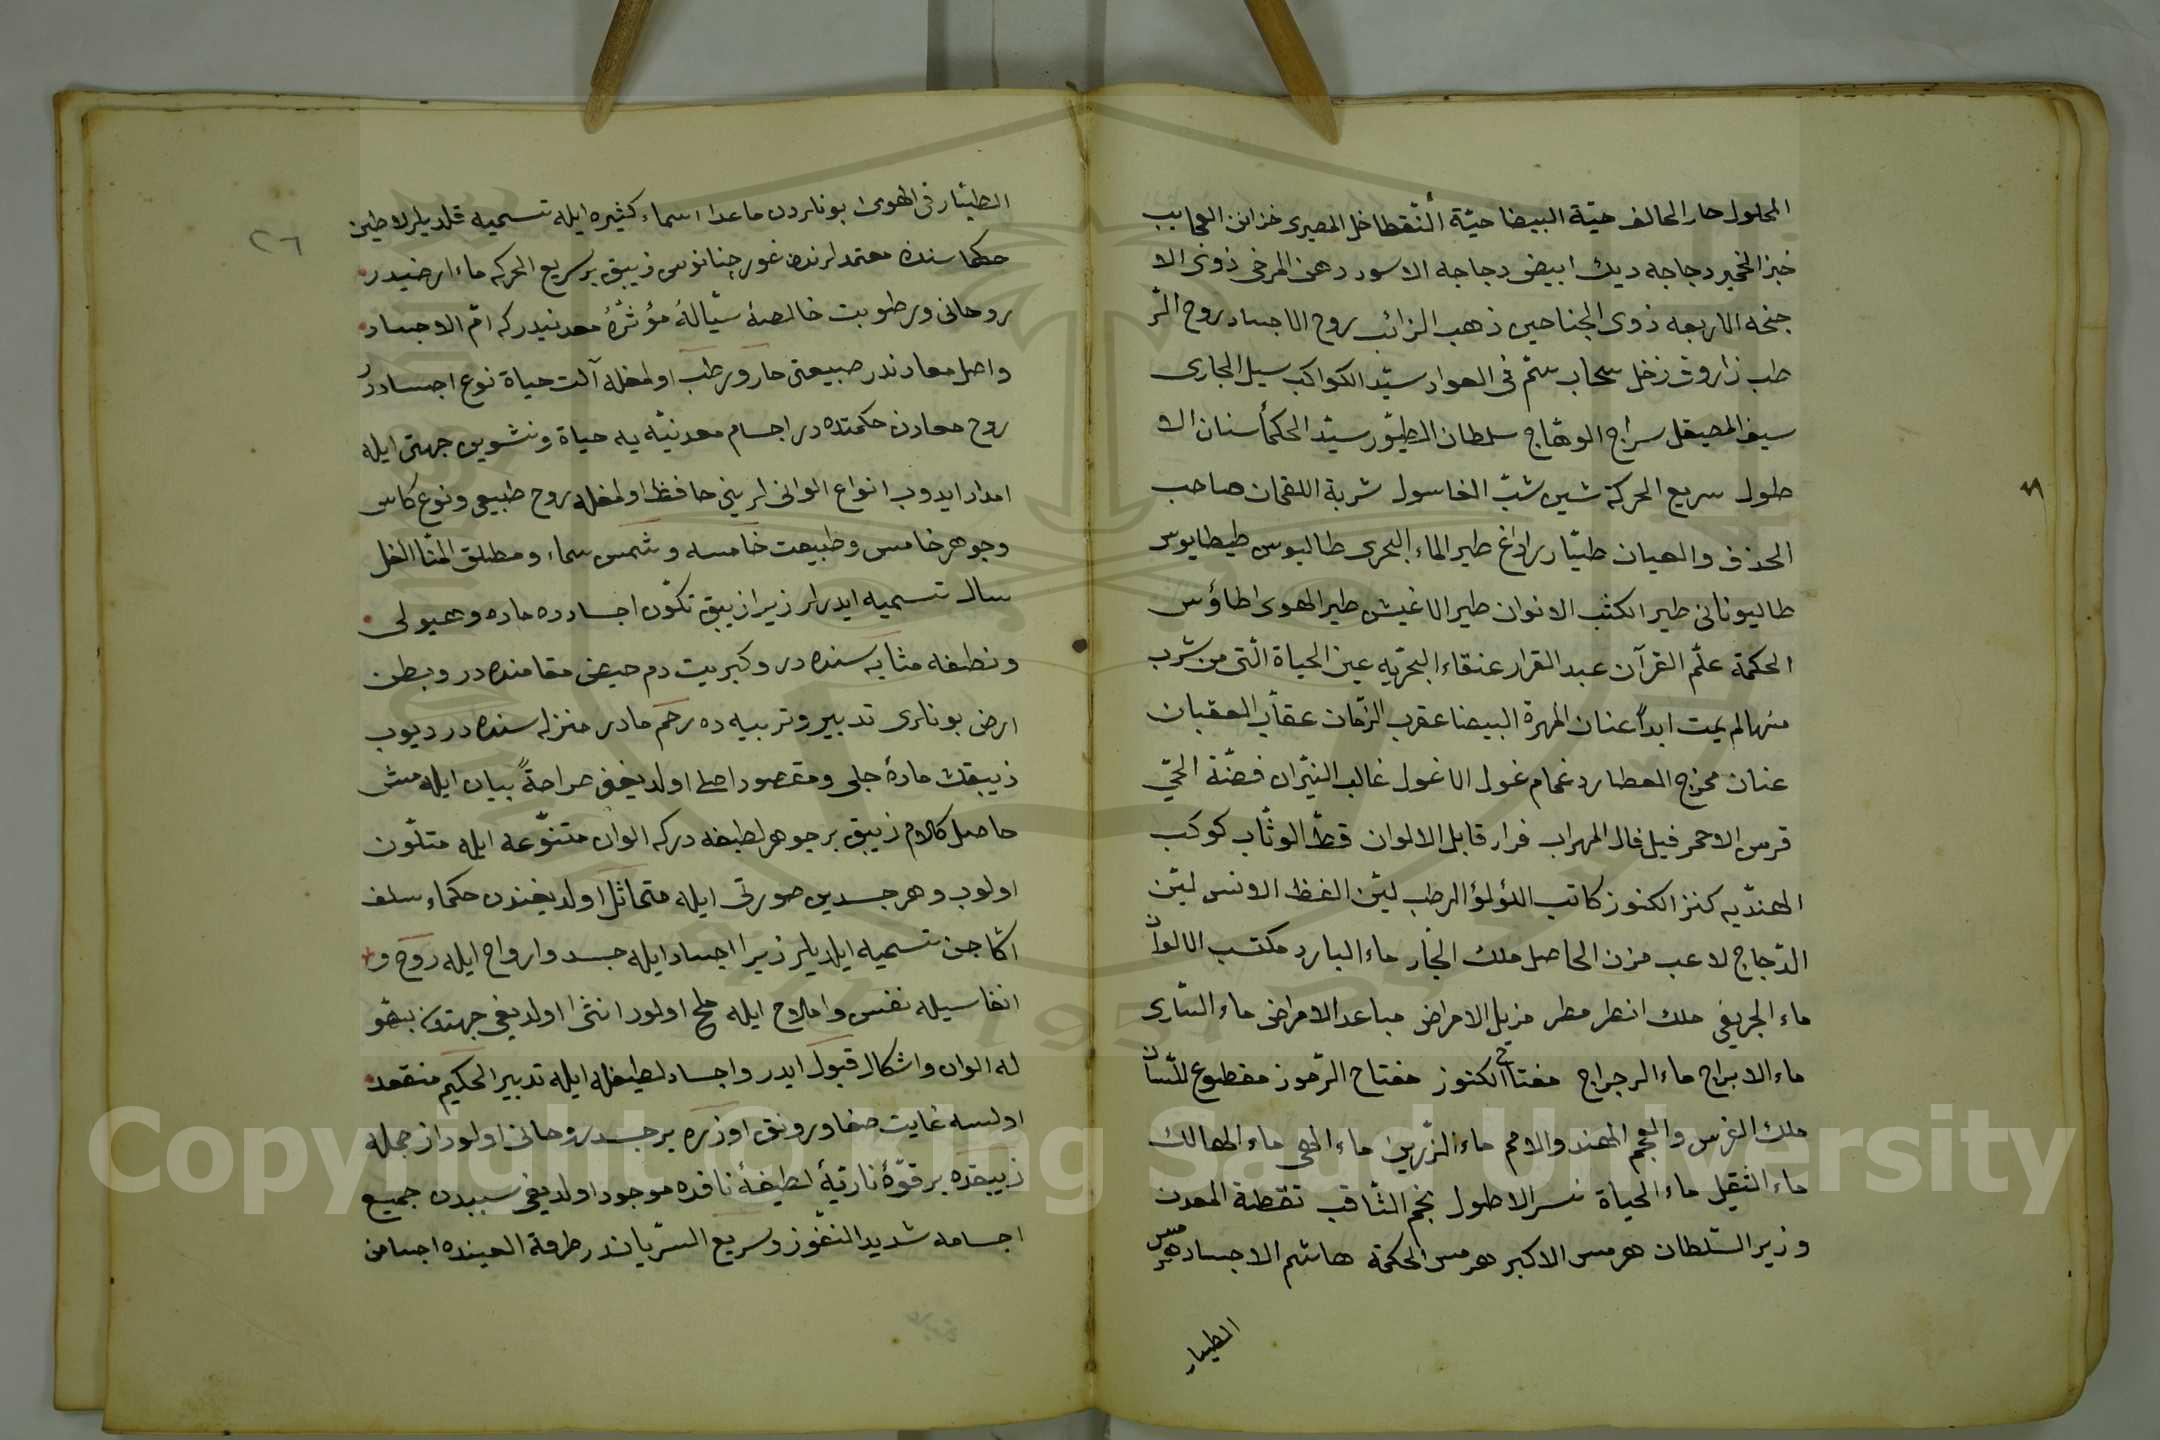 المحلول حار الحالف حيّة البيضا حيّة النّقطا خل المصرى خزاين العجايب
خبز الخمير دجاجه ديك ابيض دجاجه الاسود دهن المرخى ذوى الا
جنحه الاربعه ذوى الجناحين ذهب الزائب روح الاجساد روح الرّ
طب زاروق زخل سحاب ستم فى الهواد سيّد الكواكب سيل الجارى
سيف المصيقل سراج الوهّاج سلطان الطيّور سيّد الحكمأ سنان الا
طول سريع الحركة شين شبّ الغاسول شربة اللقمان صاحب
الحذف والعيان طيّار براداغ طير الماء البحرى طاليوس طيطايوس
طاليونانى طير الكتب الانوان طير الاغيش طير الهوى اطاؤس
الحكمة علّم القرآن عبد القرار عنقاء البحرّيه عين الحياة الّتى من شرب
منها لم يمت ابداً عنان المهرة البيضا عقرب الزّمان عقأب العقبان
عنان مخرج العطارد غمام غول الاغول غالب النيّران فضّة الحىّ
قرص الاحمر فيل فال المهراب فرار قابل الالوان قطّ الوثّاب كوكب
الهندّيه كنز الكنوز كاتب اللؤلؤ الرطب ليّن الفظ الاونس ليّن
الدّجاج لاعب مزن الحاصل ملك الجّار ماء البارد مكتسب الالوان
ماء الجريفى ملك انطر مطر مزيل الامراض مباعد الامراض ماء السّارى
ماء الابراج ماء الرجراج مفتاح الكنوز مفتاح الرّموز مقطوع للسّان
ملك الفرس والعجم الهند والامم ماء الزّرين ماء الهى ماء الهالك
ماء الثقيل ماء الحياة نسر الاطول نجم الثّاقب نقطة المعدن
وزير السّلطان هرمس الاكبر هرمس الحكمة هاشم الاجساد هرمس
الطيار
٢٦
الطيّار فى الهوى بونلردن ماعدا اسماء كثيره ايله تسميه قلديلر لاطين
حكماسنده معتمدلرندن غورجنانوس زيبق بر سريع الحركه ماء ارضيدر
روحانى ورطوبت خالصهٔ سيّالهٔ مؤثّرهٔ معدنيدركه امّ الاجساد
واصل معادندر طبيعتى حار ورطب اولمغله آلت حياة نوع اجساددر
روح معادن حكمتده در اجسام معدنيّه يه حياة ونشوين جهتى ايله
امداد ايدوب انواع الوانلرينى حافظ اولمغله روح طبيعى ونوع كاس
وجوهر خامس وطبيعت خامسه وشمس سماء ومطلق المثّا الخل
سال تسميه ايدرلر زيرا زيبق تكوّن اجسادده ماده وهيولى
ونطفه مثابه سنده در وكبريت دم حيض مقامنده در وبطن
ارض بونلرى تدبير وتربيه ده رحم مادر منزله سنده در ديوب
زيبقك مادهٔ جلى ومقصود اصلى اولديغنى صراحةً بيان ايلمش
حاصل كلام زيبق بر جوهر لطيفه دركه الوان متنوّعه ايله متلوّن
اولوب وهر جسدين صورتى ايله متماثل اولديغندن حكماء سلف
اكا جن تسميه ايلديلر زيرا اجساد ايله جسد وارواح ايله روح و
انفاسيله نفس واملاح ايله ملح اولور انثى اولديغى جهتدن بتقو
له الوان واشكال قبول ايدر واجساد لطيفله ايله تدبير الحكيم منعقد
اولسه غايت صفا ورونق اوزره بر جسد روحانى اولور از جمله
زيبقده بر قوّهٔ ناريّهٔ لطيفهٔ نافذه موجود اولديغى سببدن جميع
اجسامه شديد النّفوز وسريع السّرياندر طرفة العينده اجسامن
Copyright © King Saud University
1957